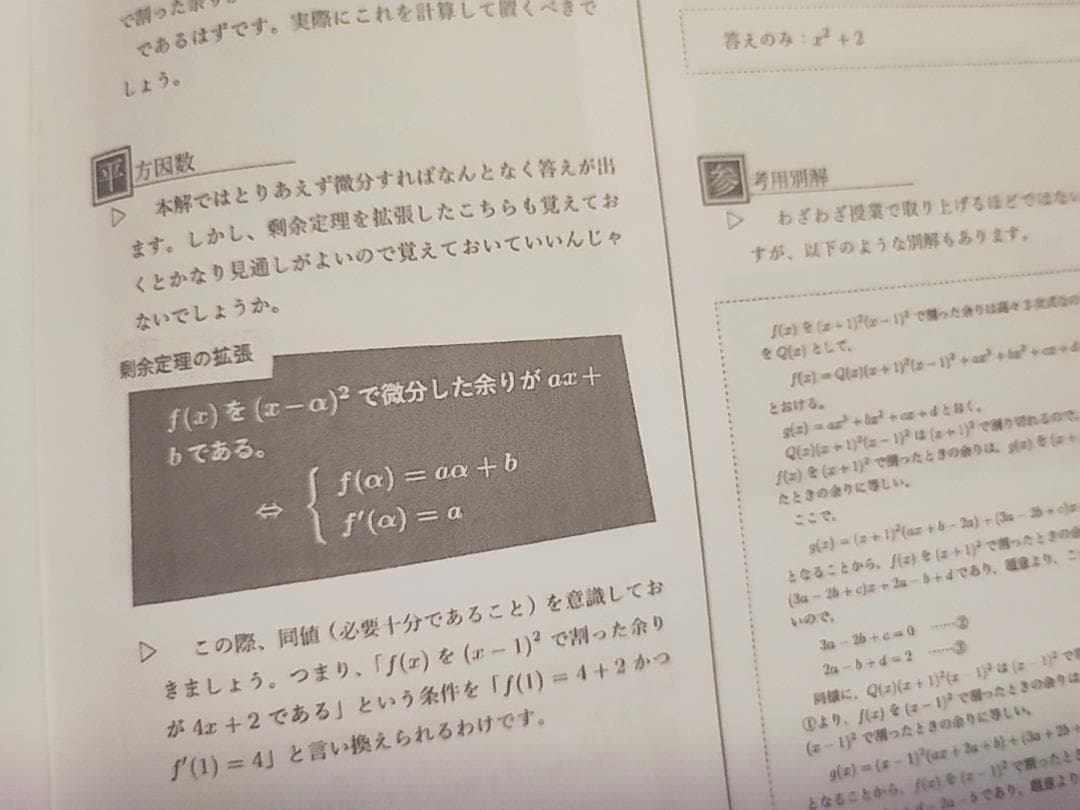 で割った余り
であるはずです。実際にこれを計算して置くべきで
しょう。
平方因数
▷ 本解ではとりあえず微分すればなんとなく答えが出
ます。しかし、剰余定理を拡張したこちらも覚えてお
くとかなり見通しがよいので覚えておいていいんじゃ
ないでしょうか。
剰余定理の拡張
f(x) を (x−α)² で微分した余りが ax+
b である。
⇔ { f(α) = aα + b
f′(α) = a
▷ この際、同値（必要十分であること）を意識してお
きましょう。つまり、「f(x) を (x−1)² で割った余り
が 4x+2 である」という条件を「f(1) = 4+2 かつ
f′(1) = 4」と言い換えられるわけです。
答えのみ：x² + 2
参考用別解
▷ わざわざ授業で取り上げるほどではない
すが、以下のような別解もあります。
f(x) を (x+1)²(x−1)² で割った余りは高々3次式なの
を Q(x) として、
f(x) = Q(x)(x+1)²(x−1)² + ax³ + bx² + cx + d
とおける。
g(x) = ax³ + bx² + cx + d とおく。
Q(x)(x+1)²(x−1)² は (x+1)² で割り切れるので、
f(x) を (x+1)² で割ったときの余りは、g(x) を (x+
たときの余りに等しい。
ここで、
g(x) = (x+1)²(ax+b−2a) + (3a−2b+c)x
となることから、f(x) を (x+1)² で割ったときの余
(3a−2b+c)x+2a−b+d であり、題意より、こ
いので、
3a − 2b + c = 0 ……②
2a − b + d = 2 ……③
同様に、Q(x)(x+1)²(x−1)² は (x−1)² で
①より、f(x) を (x−1)² で割ったときの余りは
(x−1)² で割ったときの余りに等しい。
g(x) = (x−1)²(ax+2a+b) + (3a+2b+
となることから、f(x) を (x−1)² で割ったときの